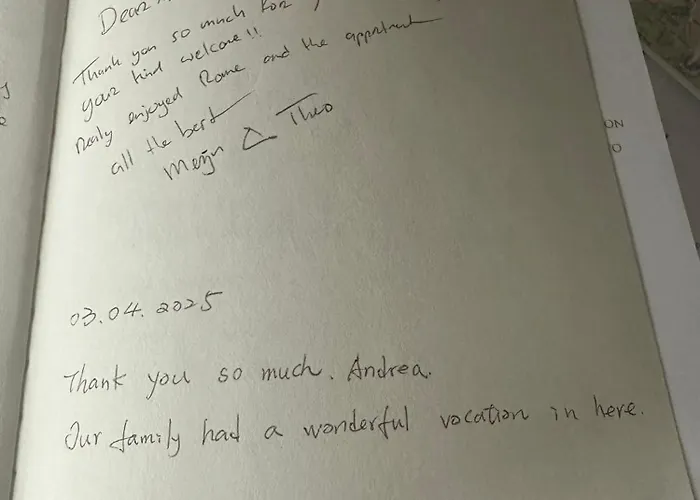 Dear
Thank you so much for
your kind welcome!!
Realy enjoyed Rome and the appartment
all the best
Merijn & Theo
03.04.2025
Thank you so much. Andrea.
Our family had a wonderful vocation in here.
ON
O